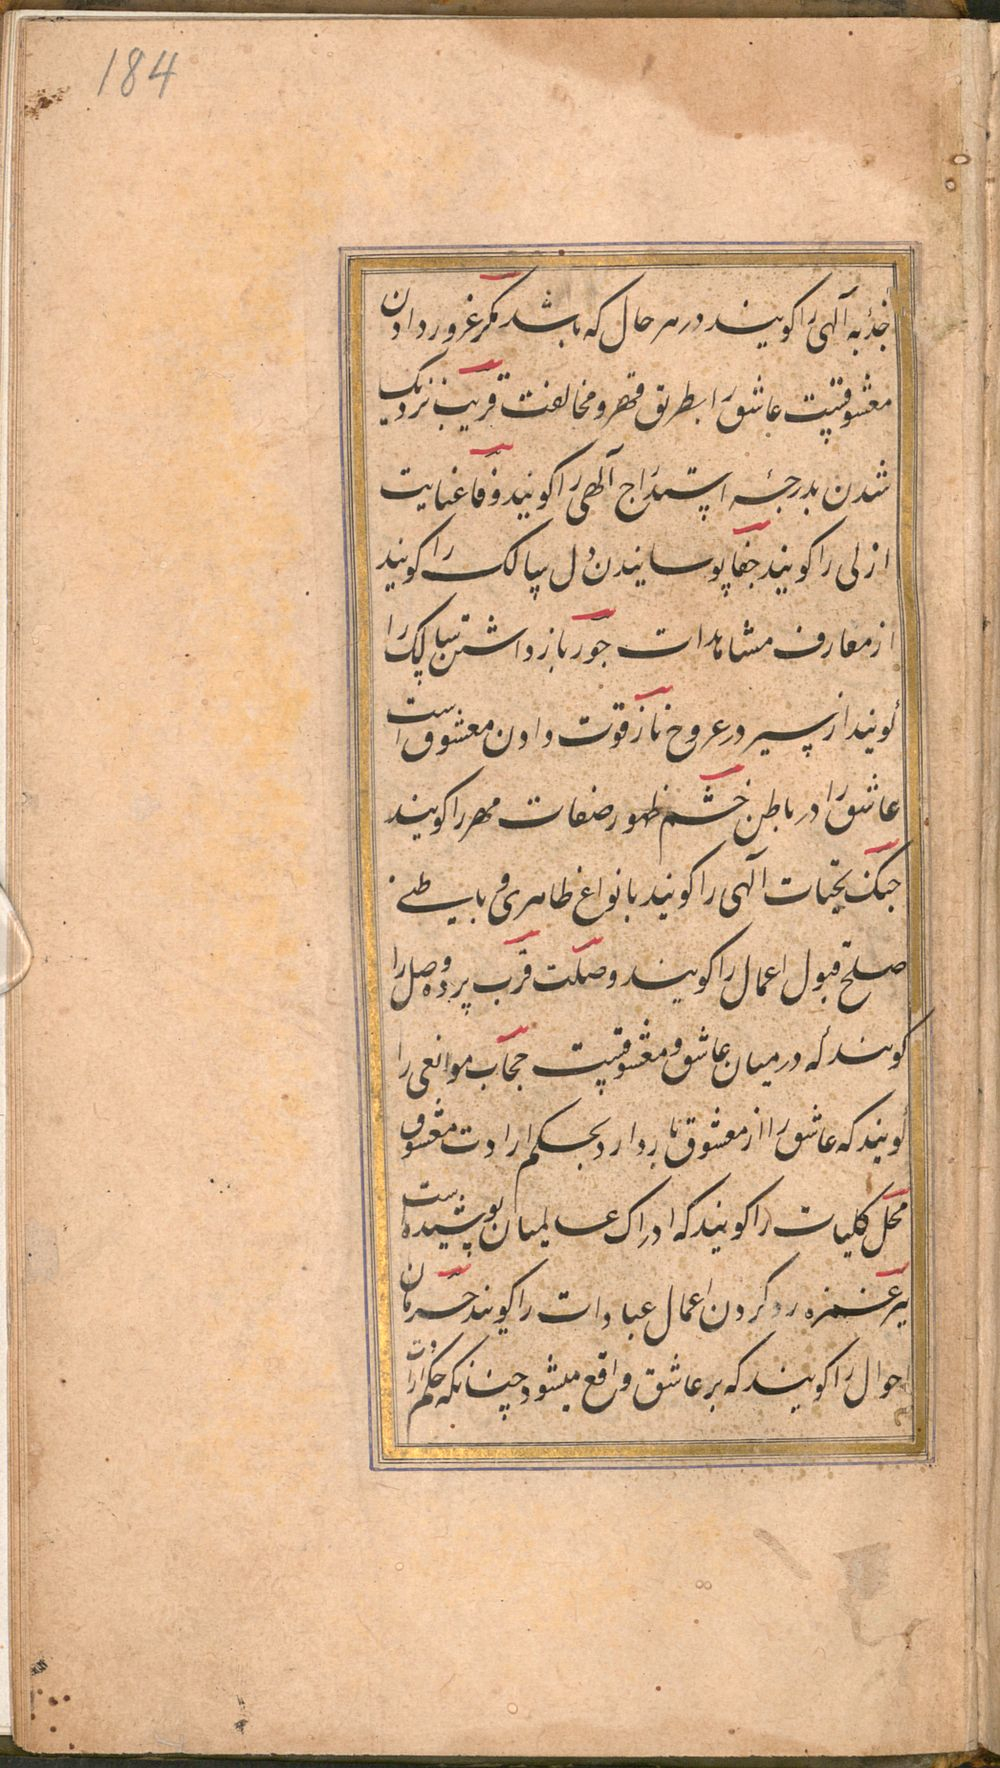 184
جذبه آلهی را کویند در هر حال که باشد مکر غرور دادن
معشوقیت عاشق را بطریق قهر و مخالفت قریب نزدیک
شدن بدرجه استدراج آلهی را کویند وفا عنایت
ازلی را کویند جفا پوسانیدن دل سالک را کویند
از معارف مشاهدات جور باز داشتن سالک را
کویند از سیر در عروج ناز قوت دادن معشوق است
عاشق را در باطن خشم ظهور صفات مهر را کویند
جنک آلهی را کویند بانواع ظاهری و باطنی
صلح قبول اعمال را کویند وصلت قرب پرده وصل را
کویند که در میان عاشق و معشوقیت حجاب موانعی را
کویند که عاشق را از معشوق باز دارد بحکم ارادت معشوق
محل کلیات را کویند که ادراک عالمیان پوشیده است
غمزه رد کردن اعمال عبادات را کویند حرمان
احوال را کویند که بر عاشق واقع میشود چنانکه حکم ارادت